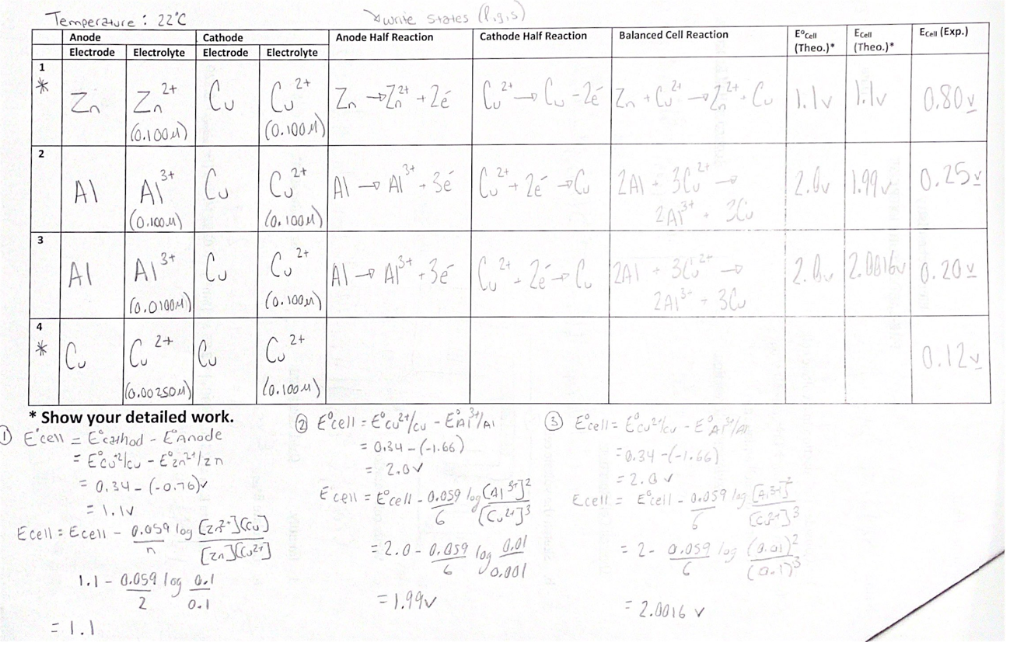 Temperature : 22°C
*write states (l.g.s)
Anode Cathode Anode Half Reaction Cathode Half Reaction Balanced Cell Reaction E°Cell (Theo.)* ECell (Theo.)* ECell (Exp.)
Electrode Electrolyte Electrode Electrolyte
1
* Zn Zn2+ (0.100M) Cu Cu2+ (0.100M) Zn → Zn2+ + 2é Cu2+ → Cu - 2é Zn + Cu2+ → Zn2+ + Cu 1.1v 1.1v 0.80v
2
Al Al3+ (0.100M) Cu Cu2+ (0.100M) Al → Al3+ + 3é Cu2+ + 2é → Cu 2Al + 3Cu2+ → 2.0v 1.99v 0.25v
2Al3+ + 3Cu
3
Al Al3+ (0.0100M) Cu Cu2+ (0.100M) Al → Al3+ + 3é Cu2+ + 2é → Cu 2Al + 3Cu2+ → 2.0v 2.0016v 0.20v
2Al3+ + 3Cu
4
* Cu Cu2+ (0.00250M) Cu Cu2+ (0.100M) 0.12v
* Show your detailed work.
① E°cell = E°cathod - E°Anode
= E°cu2+/cu - E°zn2+/zn
= 0.34 - (-0.76)v
= 1.1v
Ecell = Ecell - 0.059/n log [Zn2+](Cu)/[Zn](Cu2+]
1.1 - 0.059/2 log 0.1/0.1
= 1.1
② E°cell = E°cu2+/cu - E°Al3+/Al
= 0.34 - (-1.66)
= 2.0v
E cell = E°cell - 0.059/6 log [Al3+]2/[Cu2+]3
= 2.0 - 0.059/6 log 0.01/0.001
= 1.99v
③ E°cell = E°cu2+/cu - E°Al3+/Al
= 0.34 - (-1.66)
= 2.0v
Ecell = E°cell - 0.059/6 log [Al3+]2/[Cu2+]3
= 2 - 0.059/6 log (0.01)2/(0.1)3
= 2.0016 v